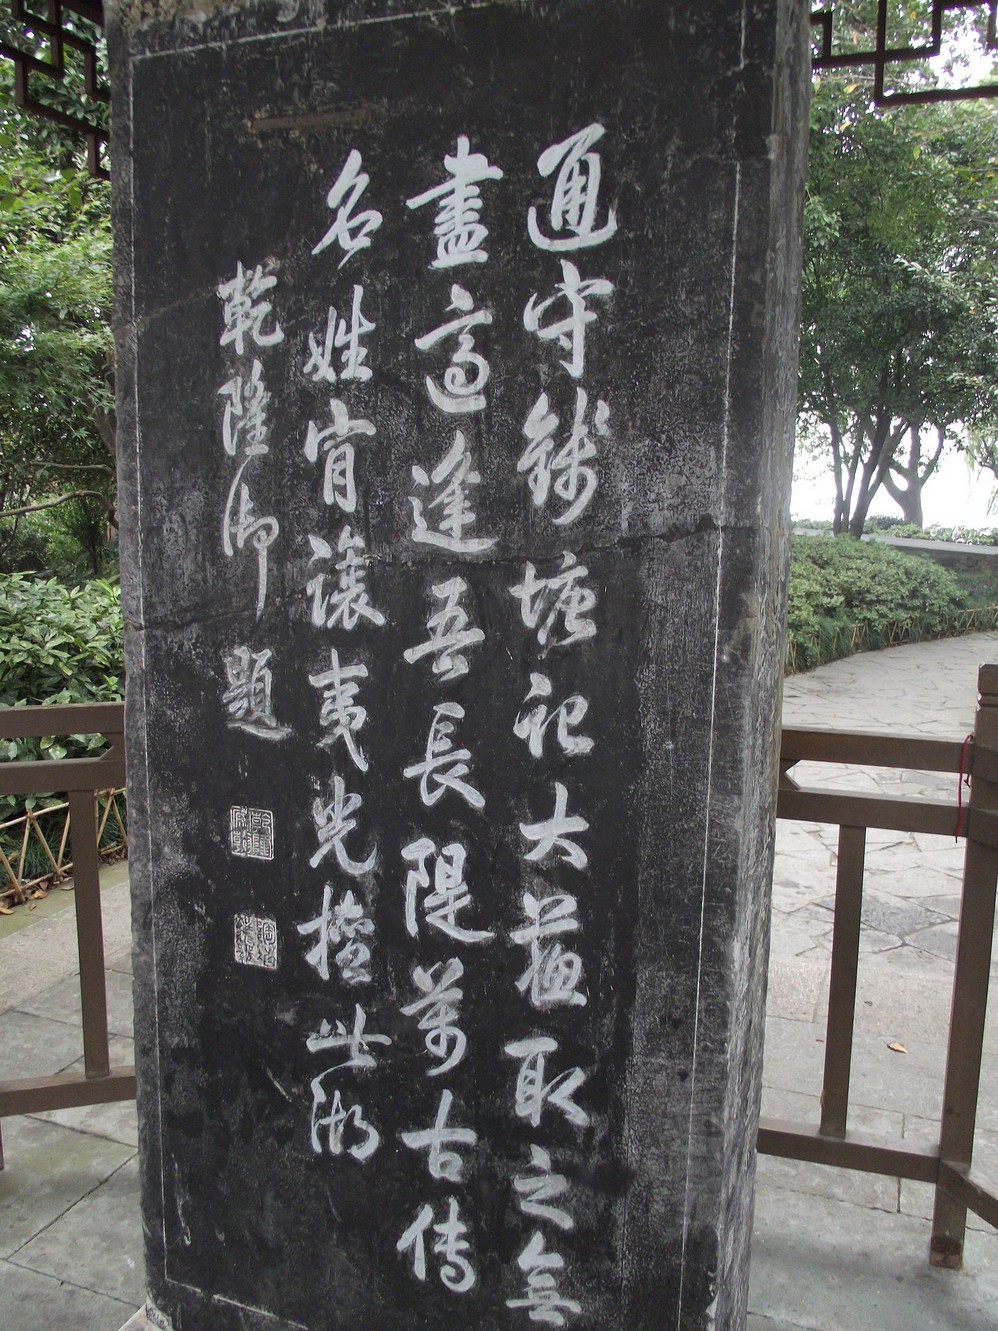 通守錢塘記大蘇取之無
盡適逢吾長隄萬古傳
名姓肯讓夷光擅此湖
乾隆御題